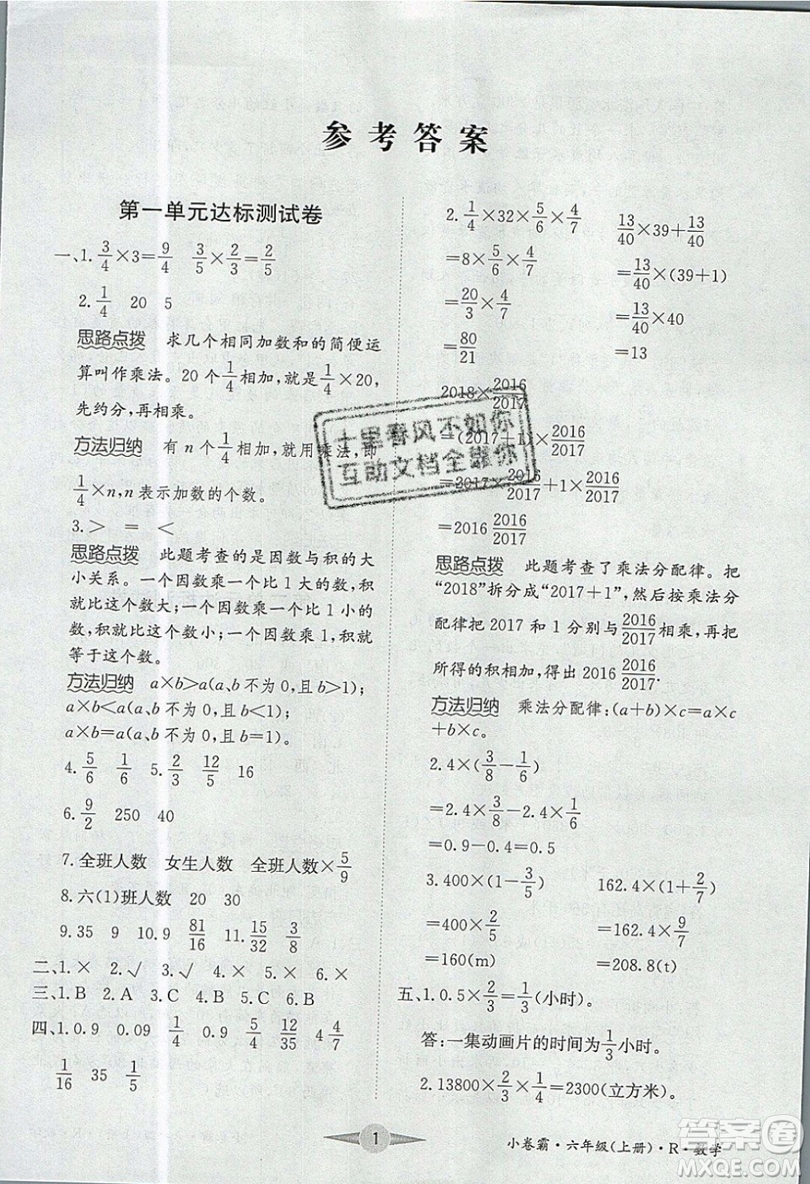 参考答案
第一单元达标测试卷
一、1.3/4×3=9/4 3/5×2/3=2/5
2.1/4 20 5
思路点拨 求几个相同加数和的简便运
算叫作乘法。20个1/4相加,就是1/4×20,
先约分,再相乘。
方法归纳 有n个1/4相加,就用乘法,即
1/4×n,n表示加数的个数。
3.> = <
思路点拨 此题考查的是因数与积的大
小关系。一个因数乘一个比1大的数,积
就比这个数大;一个因数乘一个比1小的
数,积就比这个数小;一个因数乘1,积就
等于这个数。
方法归纳 a×b>a(a、b不为0,且b>1);
a×b<a(a、b不为0,且b<1);
a×b=a(a、b不为0,且b=1)。
4.5/6 1/6 5.2/3 12/15 16
6.9/2 250 40
7.全班人数 女生人数 全班人数×5/9
8.六(1)班人数 20 30
9.35 9 10.9 81/16 11.15/32 33
二、1.× 2.√ 3.√ 4.× 5.× 6.×
三、1.B 2.A 3.C 4.C 5.B
四、1.0.9 0.09 1/4 0.9 5/4 12/35 4 4/7
1/16 35 1/5
2.1/4×32×5/6×4/7 13/40×39+13/40
=8×5/6×4/7 =13/40×(39+1)
=20/3×4/7 =13/40×40
=80/21 =13
2018×2016/2017
=(2017+1)×2016/2017
=2017×2016/2017+1×2016/2017
=2016 2016/2017
思路点拨 此题考查了乘法分配律。把
“2018”拆分成“2017+1”,然后按乘法分
配律把2017和1分别与2016/2017相乘,再把
所得的积相加,得出2016 2016/2017.
方法归纳 乘法分配律:(a+b)×c=a×c
+b×c。
2.4×(3/8-1/6)
=2.4×3/8-2.4×1/6
=0.9-0.4=0.5
3.400×2/5 162.4×9/7
=400×2/5 =162.4×9/7
=160(m) =208.8(t)
五、1.0.5×2/3=1/3(小时)。
答:一集动画片的时间为1/3小时。
2.13800×2/3×1/4=2300(立方米)。
十里春风不如你
互动文档全靠你
1
小卷霸·六年级(上册)·R·数学
答案圈
MXQE.COM